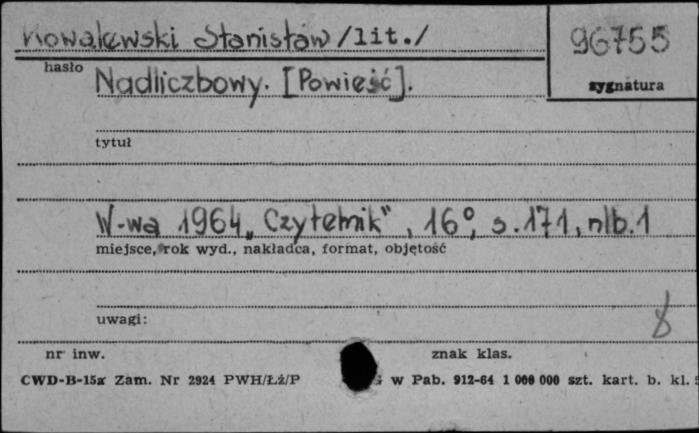 Kowalewski Stanisław /lit./
96755
hasło
Nadliczbowy. [Powieść].
sygnatura
tytuł
W-wa 1964 „Czytelnik", 16°, s. 171, nlb. 1
miejsce, rok wyd., nakładca, format, objętość
uwagi:
8
nr inw.
znak klas.
CWD-B-15a Zam. Nr 2924 PWH/Łź/P
w Pab. 912-64 1 000 000 szt. kart. b. kl.